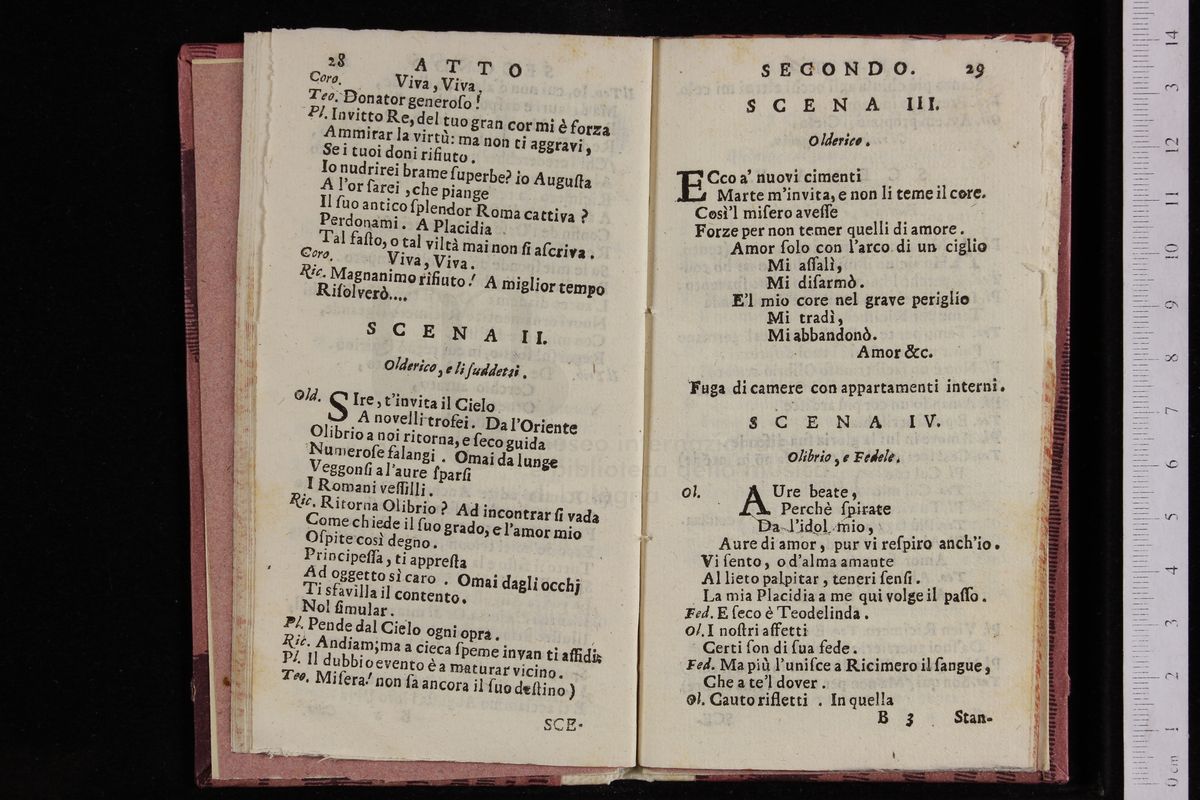 28 ATTO
Coro. Viva, Viva.
Teo. Donator generoſo!
Pl. Invitto Re, del tuo gran cor mi è forza
Ammirar la virtù: ma non ti aggravi,
Se i tuoi doni rifiuto.
Io nudrirei brame ſuperbe? io Auguſta
A l'or ſarei, che piange
Il ſuo antico ſplendor Roma cattiva?
Perdonami. A Placidia
Tal faſto, o tal viltà mai non ſi aſcriva.
Coro. Viva, Viva.
Ric. Magnanimo rifiuto! A miglior tempo
Riſolverò....
SCENA II.
Olderico, e li ſuddetti.
Old. SIre, t'invita il Cielo
A novelli trofei. Da l'Oriente
Olibrio a noi ritorna, e ſeco guida
Numeroſe falangi. Omai da lunge
Veggonſi a l'aure ſparſi
I Romani veſſilli.
Ric. Ritorna Olibrio? Ad incontrar ſi vada
Come chiede il ſuo grado, e l'amor mio
Oſpite così degno.
Principeſſa, ti appreſta
Ad oggetto sì caro. Omai dagli occhj
Ti sfavilla il contento.
Nol ſimular.
Pl. Pende dal Cielo ogni opra.
Ric. Andiam; ma a cieca ſpeme invan ti affidi:
Pl. Il dubbio evento è a maturar vicino.
Teo. Miſera! non ſa ancora il ſuo deſtino)
SCE-
SECONDO. 29
SCENA III.
Olderico.
ECco a' nuovi cimenti
Marte m'invita, e non li teme il core.
Così'l miſero aveſſe
Forze per non temer quelli di amore.
Amor ſolo con l'arco di un ciglio
Mi aſſalì,
Mi diſarmò.
E'l mio core nel grave periglio
Mi tradì,
Mi abbandonò.
Amor &c.
Fuga di camere con appartamenti interni.
SCENA IV.
Olibrio, e Fedele.
Ol. AUre beate,
Perchè ſpirate
Da l'idol mio,
Aure di amor, pur vi reſpiro anch'io.
Vi ſento, o d'alma amante
Al lieto palpitar, teneri ſenſi.
La mia Placidia a me qui volge il paſſo.
Fed. E ſeco è Teodelinda.
Ol. I noſtri affetti
Certi ſon di ſua fede.
Fed. Ma più l'uniſce a Ricimero il ſangue,
Che a te'l dover.
Ol. Cauto rifletti. In quella
B 3 Stan-
0 cm 1 2 3 4 5 6 7 8 9 10 11 12 13 14